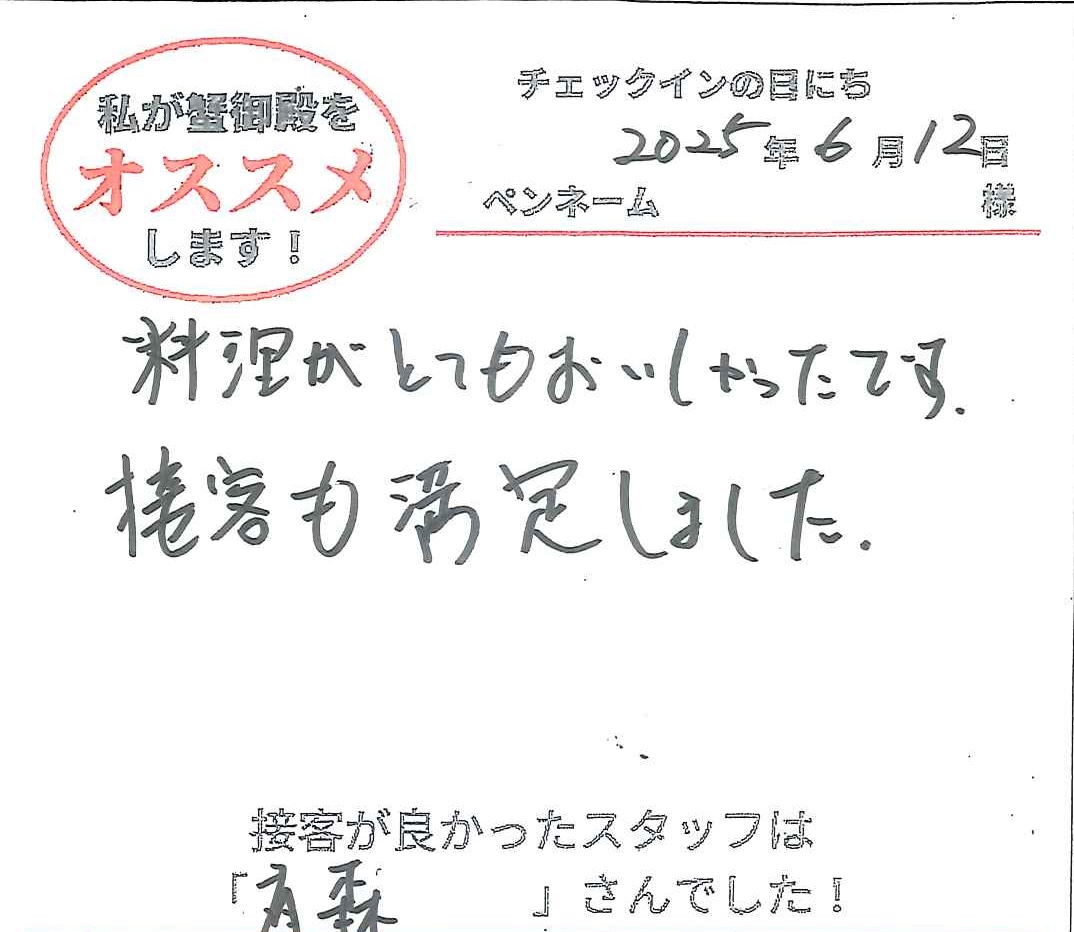 私が蟹御殿を
オススメ
します！
チェックインの日にち
2025年6月12日
ペンネーム 様
料理がとてもおいしかったです.
接客も満足しました.
接客が良かったスタッフは
「 森 」さんでした！